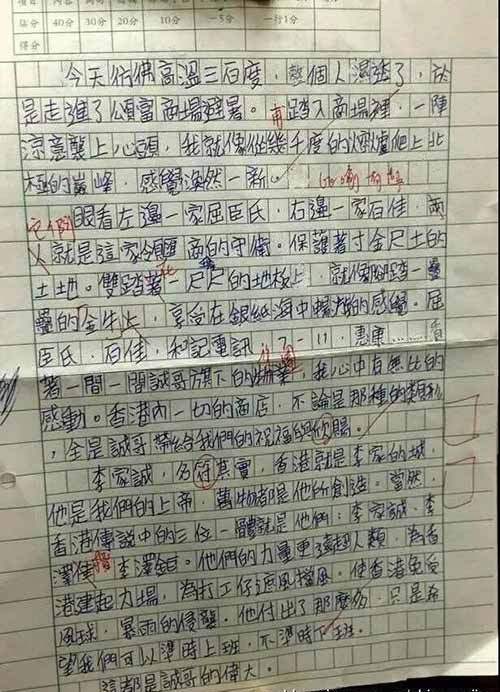 佔分 40分 30分 20分 10分 －5分 一行1分
得分
今天仿佛高溫三百度，整個人濕透了，於
是走進了頌富商場避暑。甫踏入商場裡，一陣
涼意襲上心頭，我就像從幾千度的火爐爬上北
極的巔峰，感覺渙然一新。
眼看左邊一家屈臣氏，右邊一家百佳，兩
人就是這家領匯商的守衛。保護著寸金尺土的
土地。雙踏著一尺尺的地板上，就像腳踏一疊
疊的金牛上，享受在銀紙海中的感覺。屈
臣氏，百佳，和記電訊，7－11，惠康……看
著一間一間誠哥旗下的，我心中有無比的
感動。香港內一切的商店，不論是那種的類形
，全是誠哥帶給我們的祝福與恩賜。
李家誠，名符其實，香港就是李家的城，
他是我們的上帝，萬物都是他所創造。當然，
香港傳說中的三位一體就是他們：李家誠、李
澤楷、李澤鉅。他們的力量更遠超人類，為香
港建起力場，為打工仔遮風擋風。使香港免受
風球，暴雨的侵襲。他付出了那麼多，只是希
望我們可以準時上班，不準時下班。
這都是誠哥的偉大。